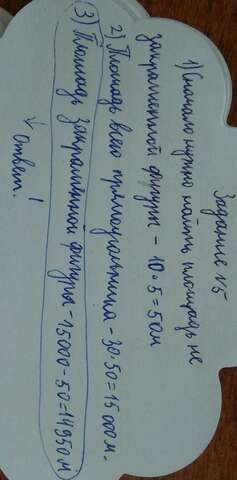 Задание №5
1) Сначало нужно найти площадь не
закрашенной фигуры - 10·5=50м
2) Площадь всего прямоугольника - 30·50=15000м.
3) Площадь закрашенной фигуры - 15000-50=14950м
↓
Ответ!